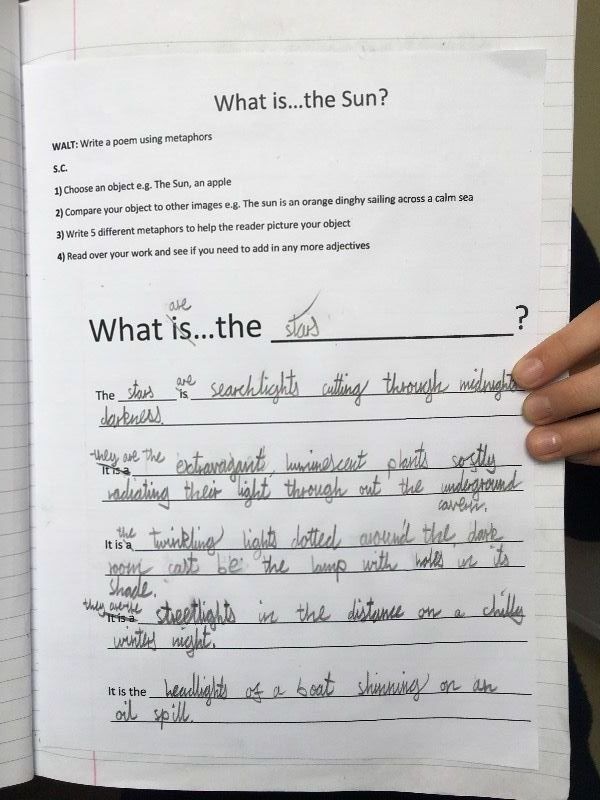 What is...the Sun?
WALT: Write a poem using metaphors
S.C.
1) Choose an object e.g. The Sun, an apple
2) Compare your object to other images e.g. The sun is an orange dinghy sailing across a calm sea
3) Write 5 different metaphors to help the reader picture your object
4) Read over your work and see if you need to add in any more adjectives
are
What is...the stars ?
are
The stars is searchlights cutting through midnight
darkness.
they are the
It is a extravagant, luminescent plants softly
radiating their light through out the underground
cavern.
the
It is a twinkling lights dotted around the dark
room cast be the lamp with holes in its
shade.
they are the
It is a streetlights in the distance on a chilly
winters night.
It is the headlights of a boat shinning on an
oil spill.